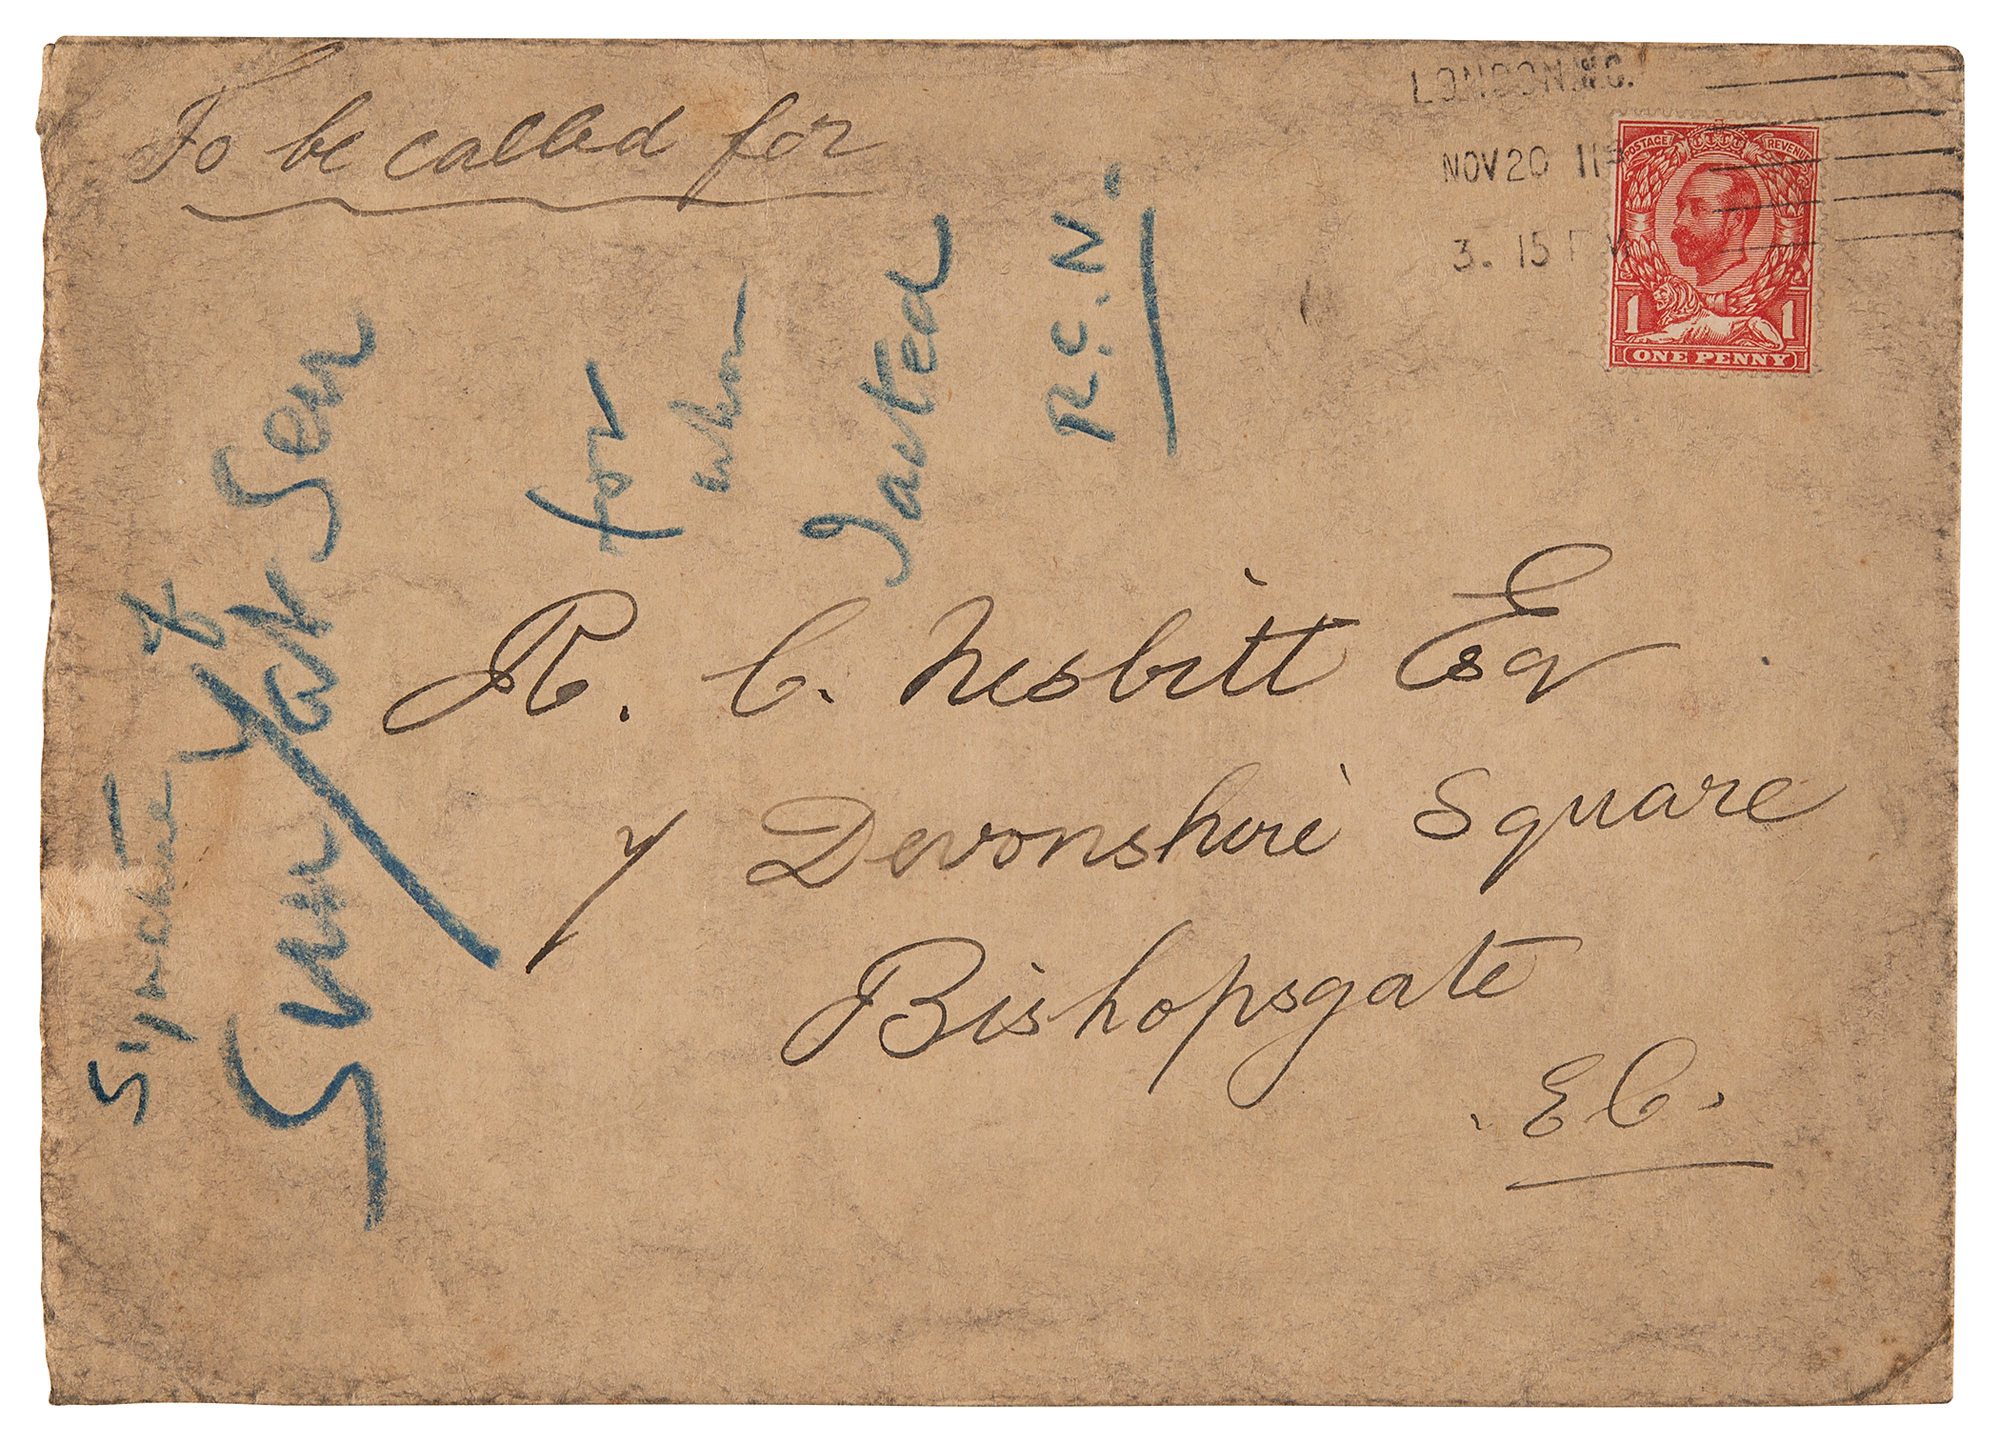 To be called for
LONDON.W.C.
NOV 20 11
3. 15 PM
POSTAGE REVENUE
1 1
ONE PENNY
R. C. Nesbitt Esq
7 Devonshire Square
Bishopsgate
E C.
Signature of
Sun Yat Sen
for
whom
I acted
R.C.N.